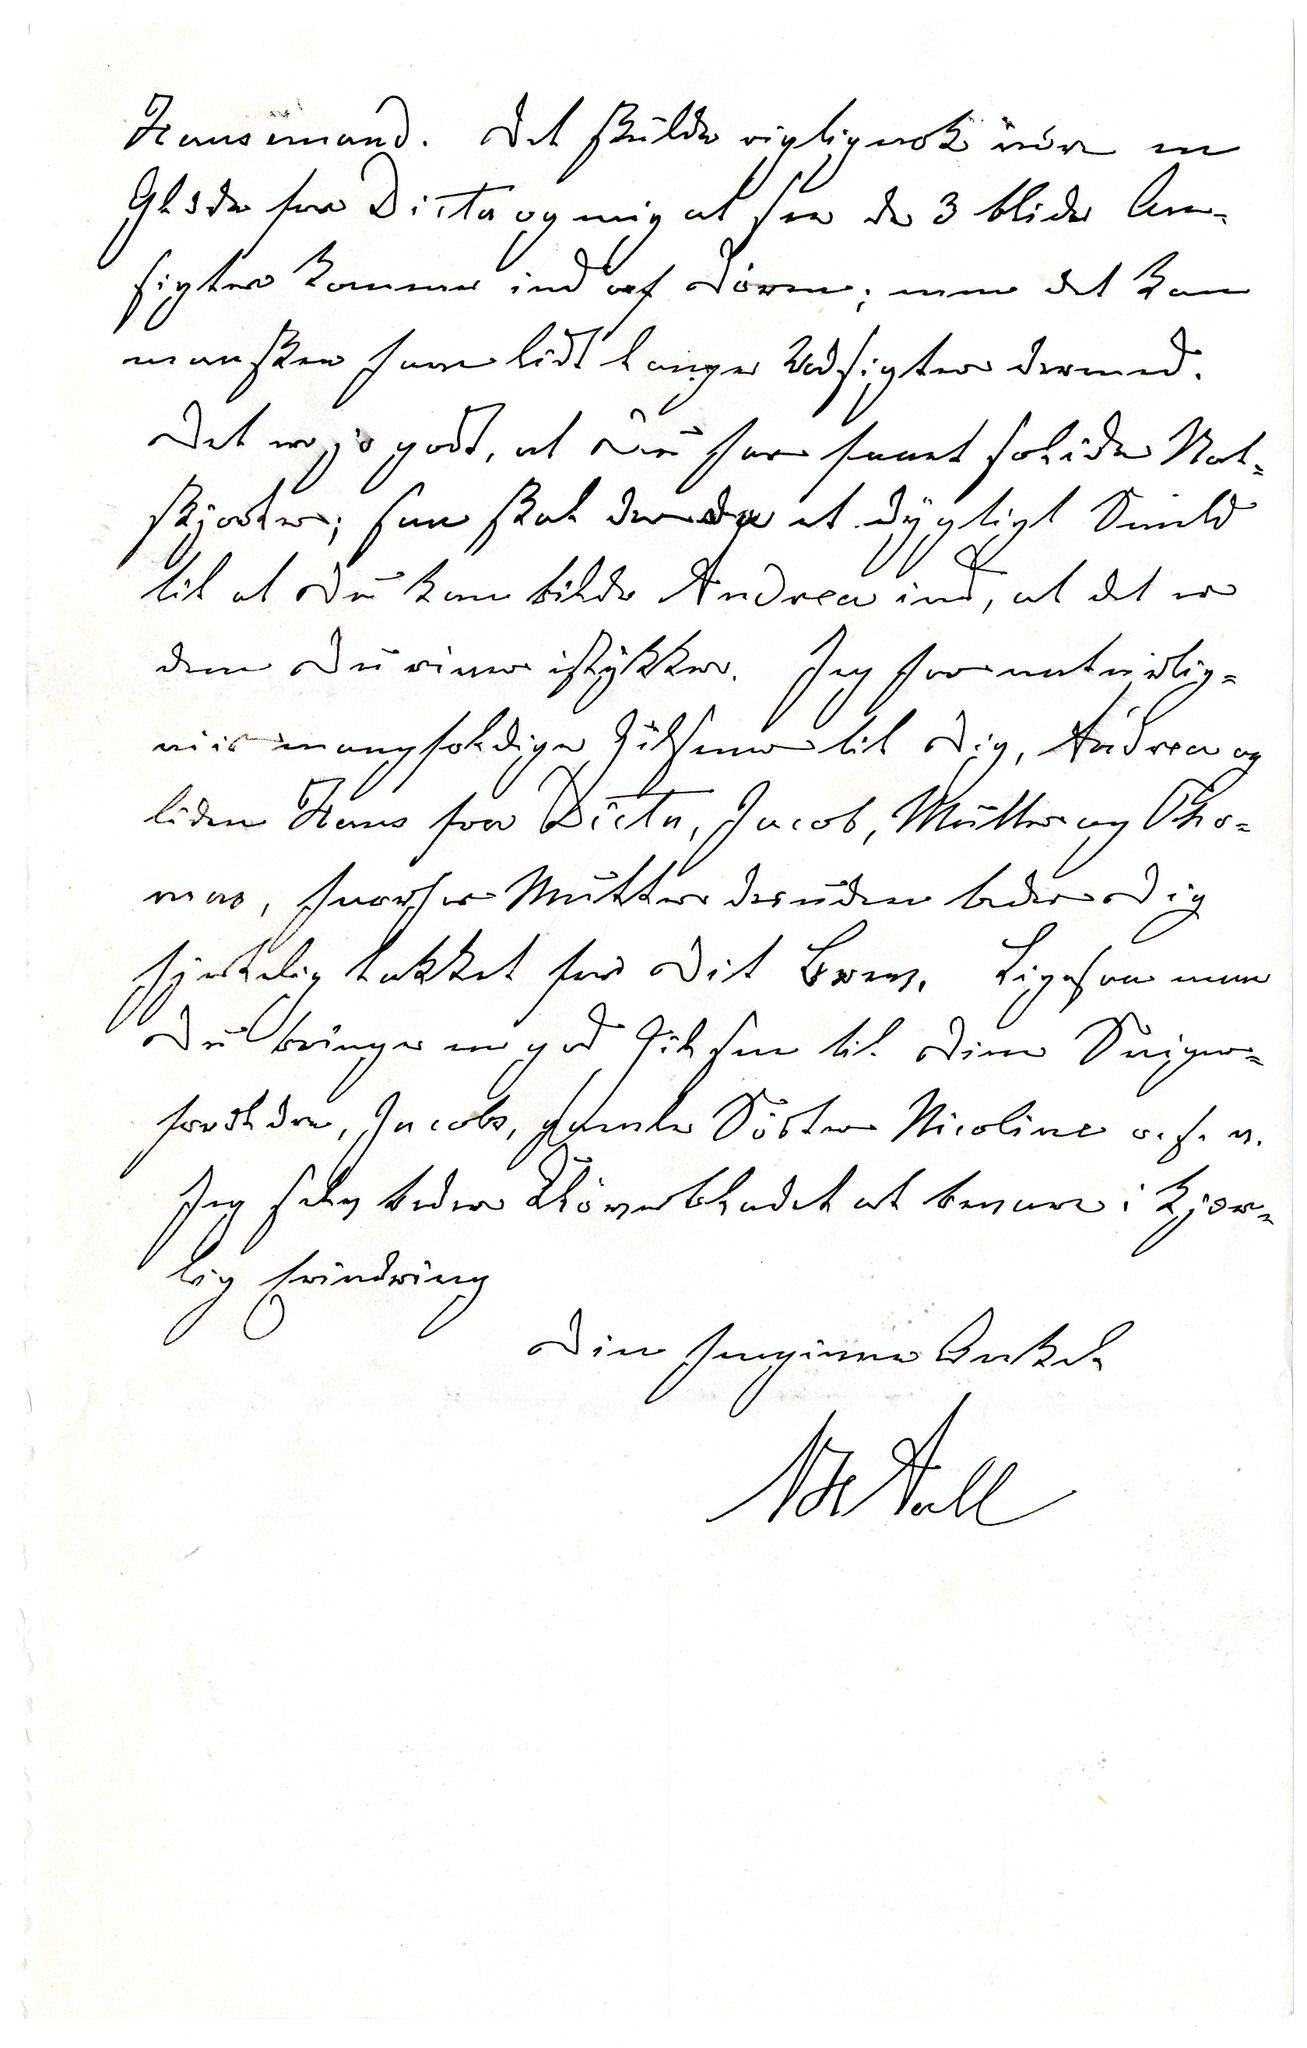 Hansemand. Det skulde rigtignok være en
Glæde for Dicta og mig at see de 3 blide An-
sigter komme ind af Døren; men det kan
maaskee have lidt lange Udsigter dermed.
Det er jo godt, at Du har faaet solide Nat-
skjorter; saa skal der da et dygtigt Smild
til at Du kan bilde Andrea ind, at det er
dem Du river istykker. Jeg har naturlig-
viis mangfoldige Hilsener til Dig, Andrea og
liden Hans fra Dicta, Jacob, Mutter og Tho-
mas, hvorhos Mutter desuden beder Dig
hjertelig takket for Dit Brev. Ligesaa maa
Du bringe en god Hilsen til Dine Sviger-
forældre, Jacobs, gamle Søster Nicoline o. s. v.
Jeg selv beder Kløverbladet at bevare i kjær-
lig Erindring
Din hengivne Onkel
NH Aall